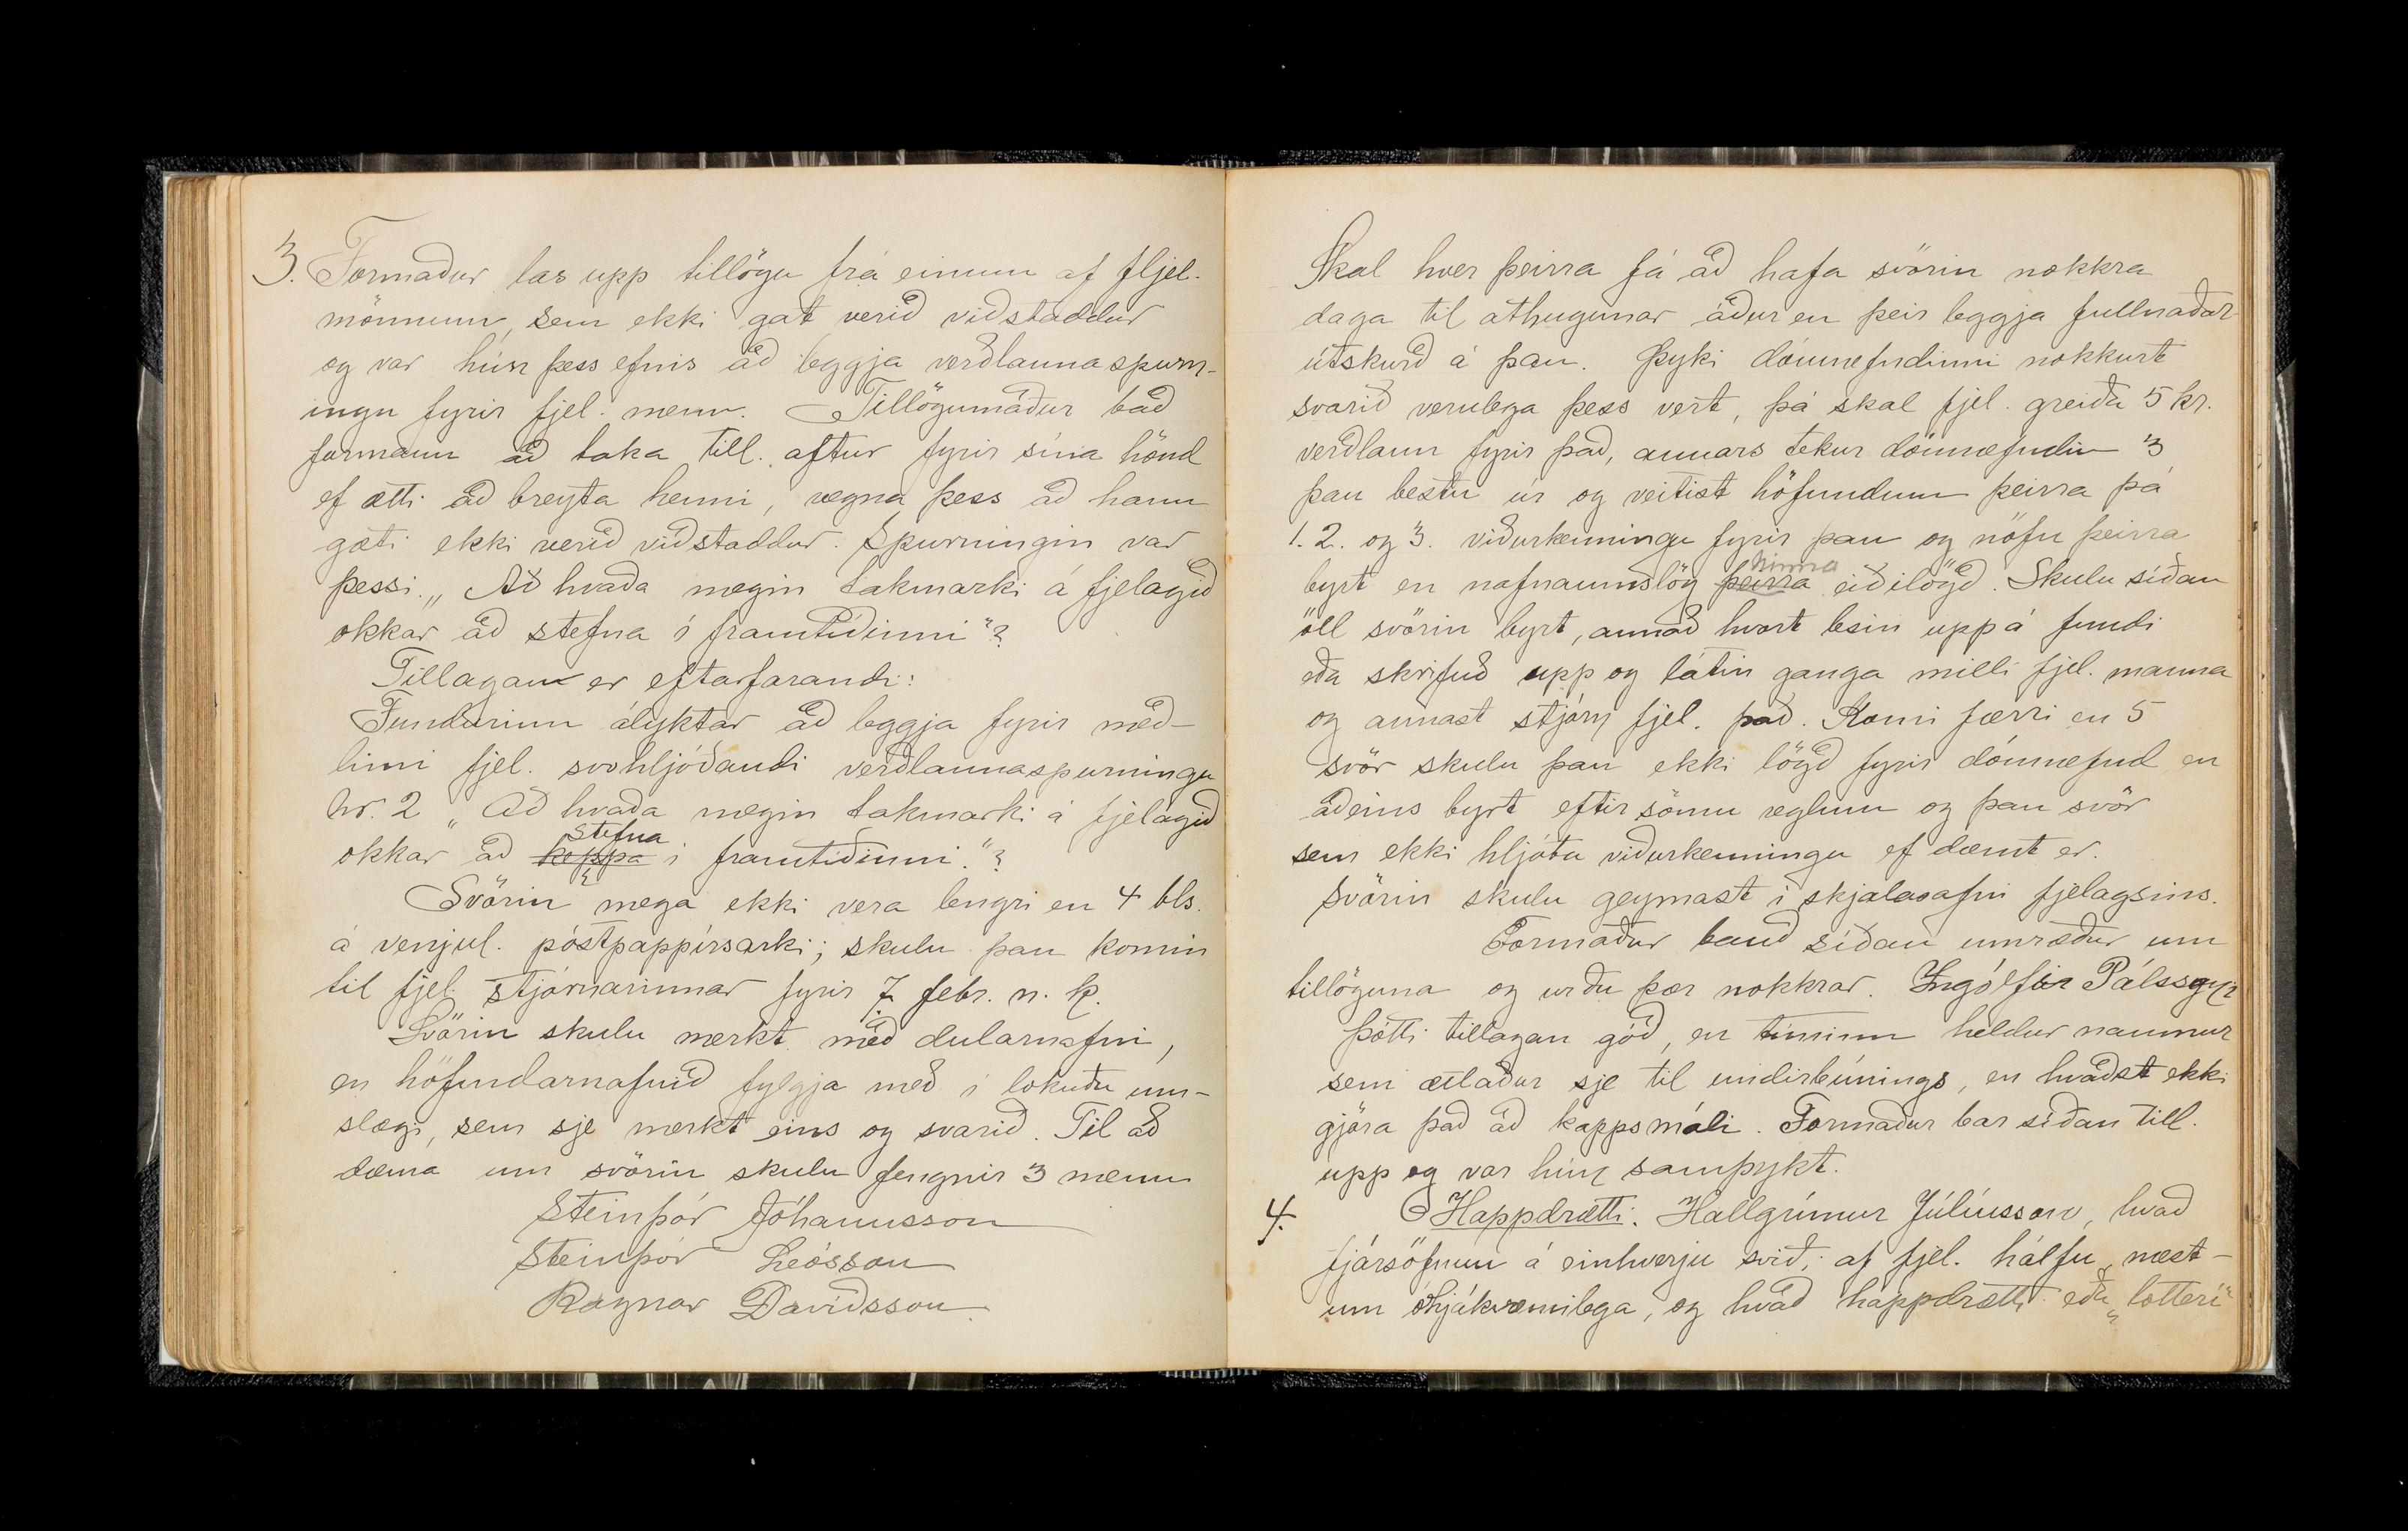 3. Formaður las upp tillögu frá einum af fjel-
mönnum, sem ekki gat verið viðstaddur
og var hún þess efnis að leggja verðlaunaspurn-
ingu fyrir fjel. menn. Tillögumaður bað
formann að taka till. aftur fyrir sína hönd
ef ætti að breyta henni, vegna þess að hann
gæti ekki verið viðstaddur. Spurningin var
þessi. „Að hvaða megin takmarki á fjelagið
okkar að stefna í framtíðinni"?
Tillagan er eftarfarandi:
Fundurinn ályktar að leggja fyrir með-
limi fjel. svohljóðandi verðlaunaspurningu
nr. 2 „Að hvaða megin takmarki á fjelagið
okkar að keppa stefna í framtíðinni."?
Svörin mega ekki vera lengri en 4 bls.
á venjul. póstpappírsarki; skulu þau komin
til fjel. stjórnarinnar fyrir 7. febr. n. k.
Svörin skulu merkt með dularnafni,
en höfundarnafnið fylgja með í lokuðu um-
slagi, sem sje merkt eins og svarið. Til að
dæma um svörin skulu fengnir 3 menn
Steinþór Jóhannsson
Steinþór Leósson
Ragnar Davíðsson
Skal hver þeirra fá að hafa svörin nokkra
daga til athugunar áður en þeir leggja fullnaðar-
útskurð á þau. Þyki dómnefndinni nokkurt
svarið verulega þess vert, þá skal fjel. greiða 5 kr.
verðlaun fyrir það, annars tekur dómnefndin 3
þau bestu úr og veitist höfundum þeirra þá
1. 2. og 3. viðurkenningu fyrir þau og nöfn þeirra
byrt en nafnaumslög þeirra hinna eiðilögð. Skulu síðan
öll svörin byrt, annað hvort lesin upp á fundi
eða skrifuð upp og látin ganga milli fjel. manna
og annast stjórn fjel. það. Komi færri en 5
svör skulu þau ekki lögð fyrir dómnefnd en
aðeins byrt eftir sömu reglum og þau svör
sem ekki hljóta viðurkenningu ef dæmt er.
Svörin skulu geymast í skjalasafni fjelagsins.
Formaður bauð síðan umræður um
tillöguna og urðu þær nokkrar. Ingólfur Pálssyni
þótti tillagan góð, en tíminn heldur naumur
sem ætlaður sje til undirbúnings, en kvaðst ekki
gjöra það að kappsmáli. Formaður bar síðan till.
upp og var hún samþykt.
4. Happdrætti. Hallgrímur Júlíusson, kvað
fjársöfnun á einhverju sviði af fjel. hálfu, næst-
um óhjákvæmilega, og kvað happdrætti eða „lotterí"